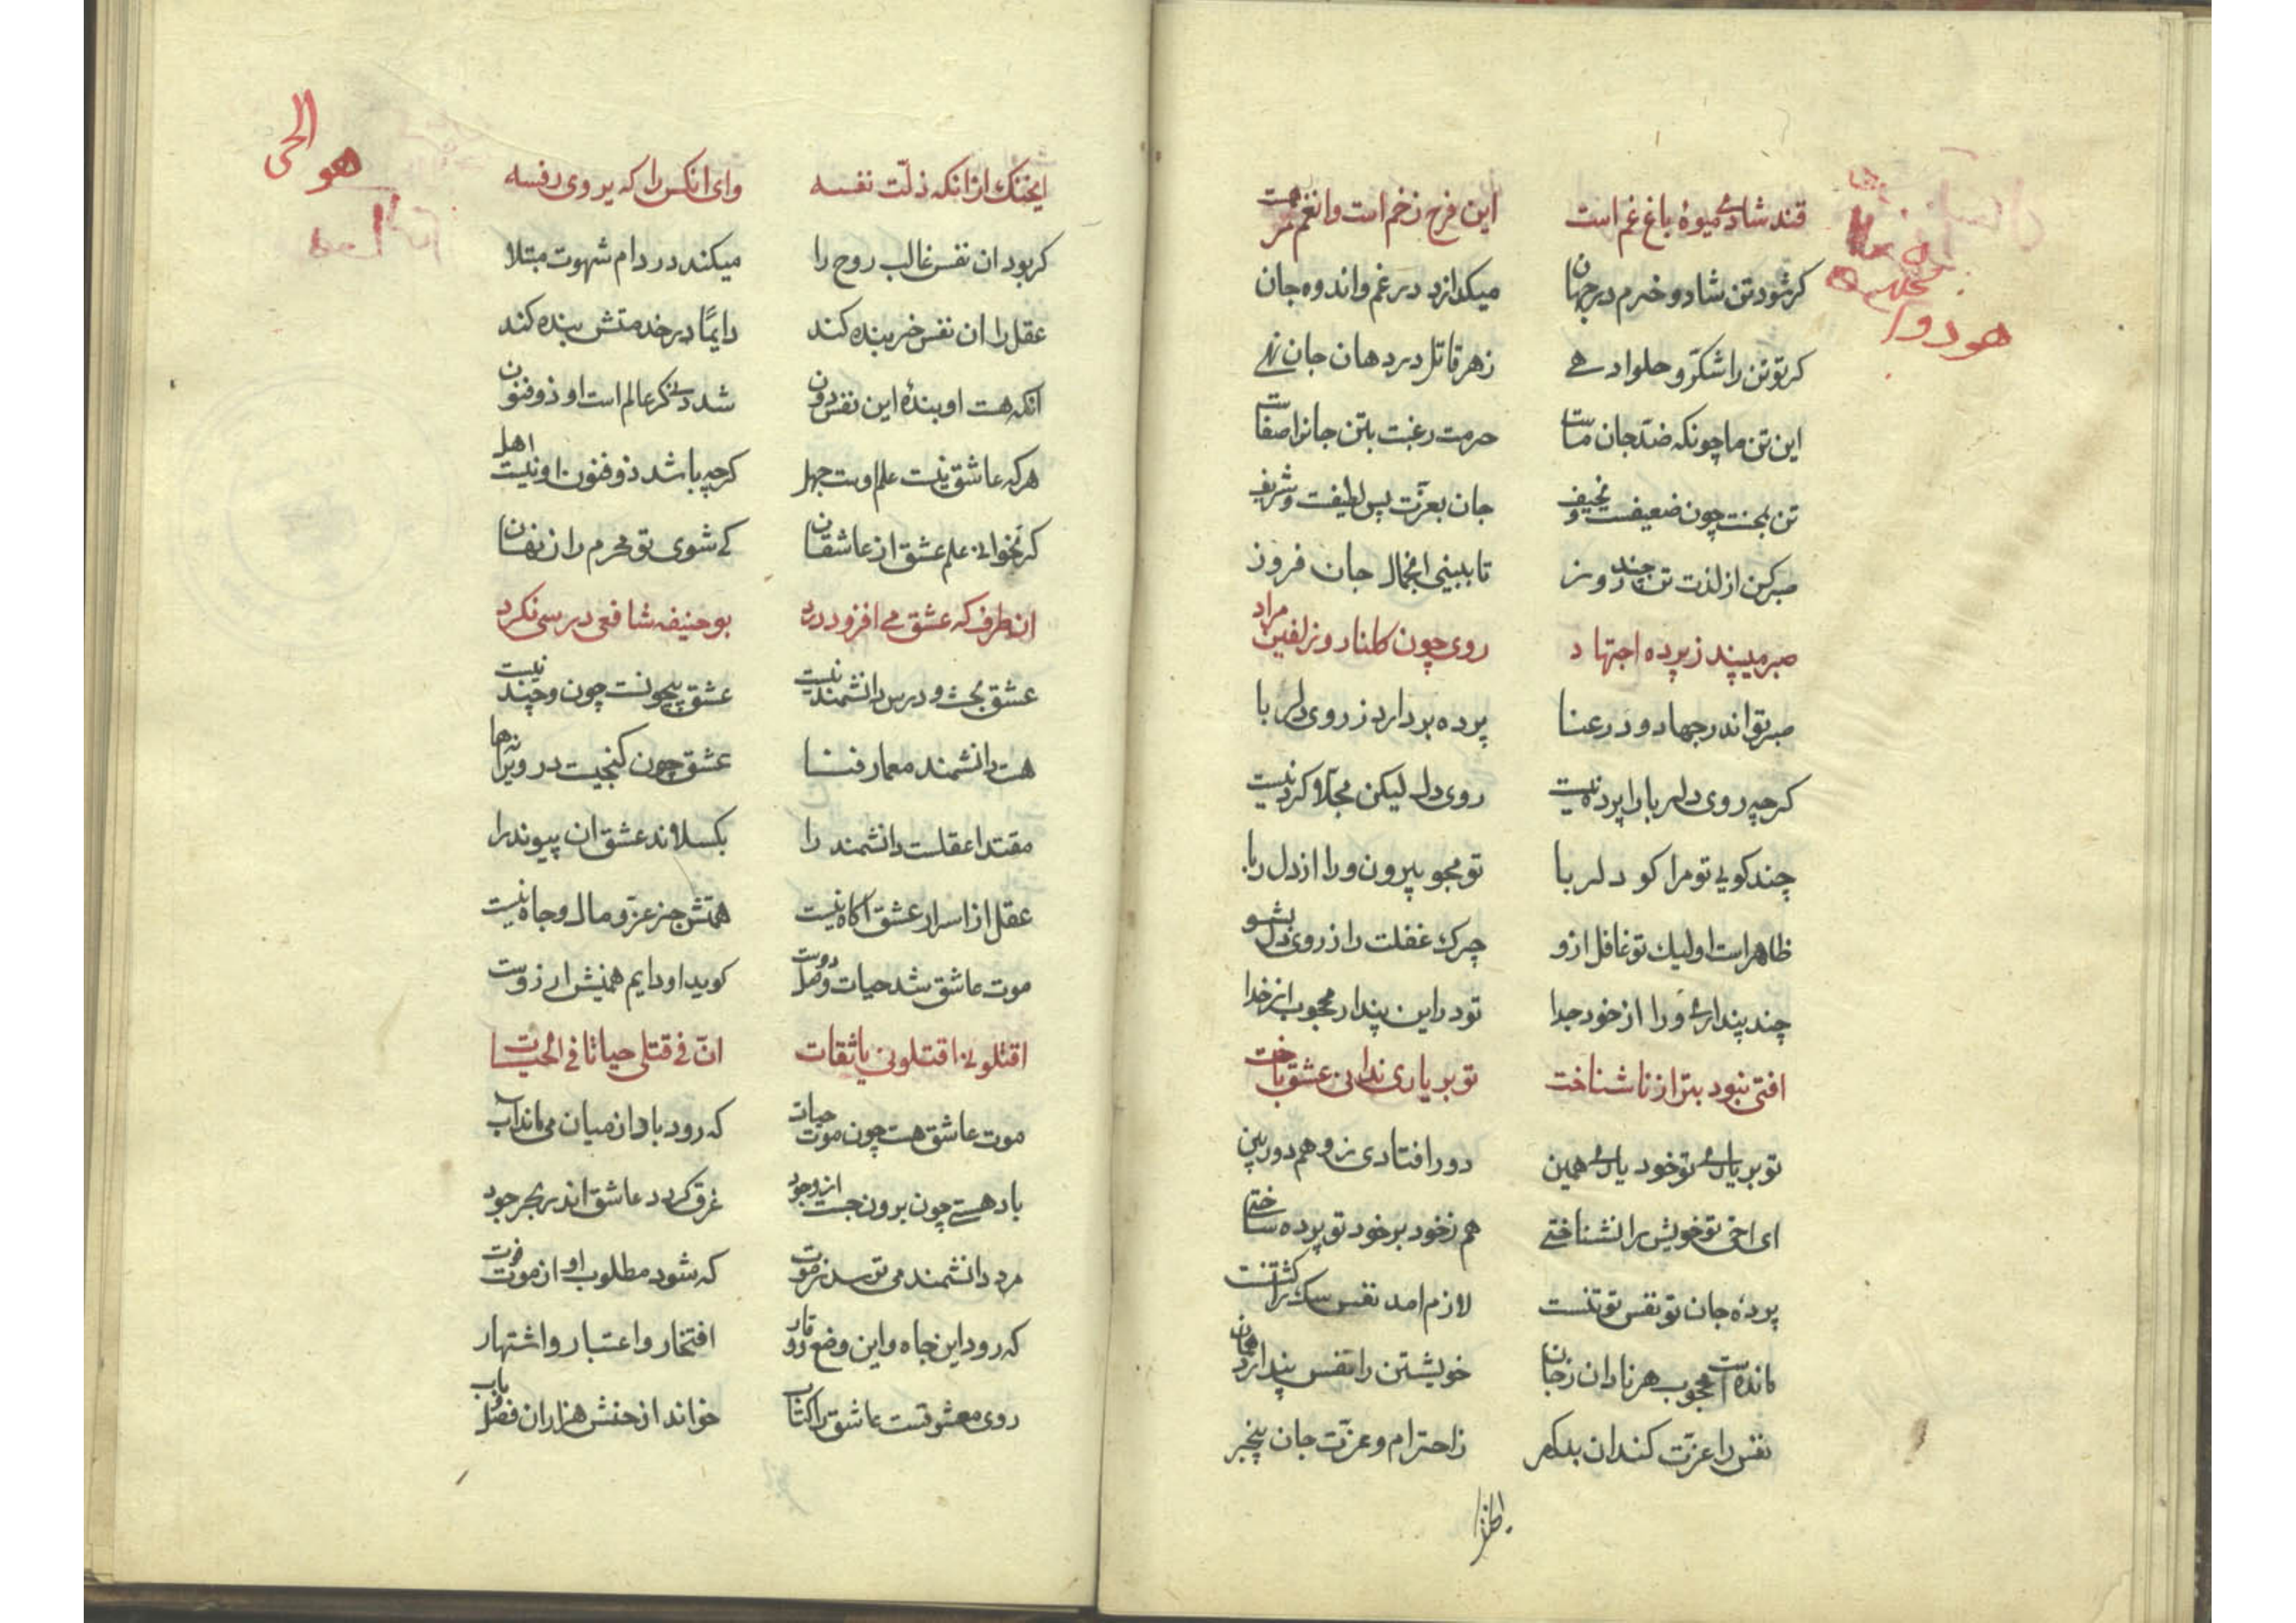 قند شادی میوۀ باغ غم است این فرح زخم است وانغم مرهمست
کر شود تن شاد و خرم در جهان میکدازد در غم و اندوه جان
کر تو تن را شکر و حلوا دهی زهر قاتل در دهان جان نهی
این تن ما چونکه ضد جان ماست حرمت رغبت بتن جانرا صفاست
تن چون ضعیفست و نحیف جان بعزت پس لطیفت و شریف
صبر کن از لذت تن چند روز تا ببینی انجمال جان فروز
صبر میبیند ز پرده اجتهاد روی چون کلنار و زلفین مراد
صبر تو اندر جهاد و در عنا پرده بردارد ز روی دلربا
کرچه روی دلربا را پرده نیست روی دل لیکن مجلا کرد نیست
چند کویی تو مرا کو دلربا تو مجو بیرون ورا از دل ربا
ظاهر است او لیک تو غافل ازو چرک غفلت را ز روی دل بشو
چند پنداری ورا از خود جدا تو در این پندار محجوب از خدا
افتی نبود بتر از ناشناخت تو بر یاری ندانی عشق باخت
تو بر یاری تو خود یاری همین دور افتادی ز و هم دوربین
ای اخی تو خویش را نشناختی هم ز خود بر خود تو پرده ساختی
پردۀ جان تو نفس تو تنست لازم امد نفس سک را کشتنست
مانده است محجوب هر نادان ز جان خویشتن را نفس پندارد همان
نفس را عزت کند ان بدکهر ز احترام و عزت جان بیخبر
هو دوا
ایخنک انرا که ذلت نفسه وای انکس را که یردی رفسه
کر بود ان نفس غالب روح را میکند در دام شهوت مبتلا
عقل را ان نفس خربنده کند دایمًا در خدمتش بنده کند
انکه هست او بندۀ این نفس دون شد دنی کر عالم است او ذوفنون
هرکه عاشق نیست علم اوست جهل کرچه باشد ذوفنون او نیست اهل
کر نخوانی علم عشق از عاشقان کی شوی تو محرم راز نهان
ان طرف که عشق می افزود درد بوحنیفه شافعی درسی نکرد
عشق بحث و درس دانشمند نیست عشق بیچونست چون و چند نیست
هست دانشمند معمار فنا عشق چون کنجیست در ویرانه ها
مقتدا عقلست دانشمند را بکسلاند عشق ان پیوند را
عقل از اسرار عشق آکاه نیست همتش جز عز و مال و جاه نیست
موت عاشق شد حیات وصل دوست کوید او دایم همینش ارزوست
اقتلونی اقتلونی یا ثقات ان فی قتلی حیاتا فی الحیات
موت عاشق هست چون موت حیات که رود باد از میان می ماند آب
باد هستی چون برون جست از وجود غرق کردد عاشق اندر بحر جود
مرد دانشمند می ترسد ز موت که شود مطلوب او از موت فوت
که رود این جاه و این وضع و وقار افتخار و اعتبار و اشتهار
روی معشوقست عاشق را کتاب خواند از حسنش هزاران فصل و باب
هو الحی